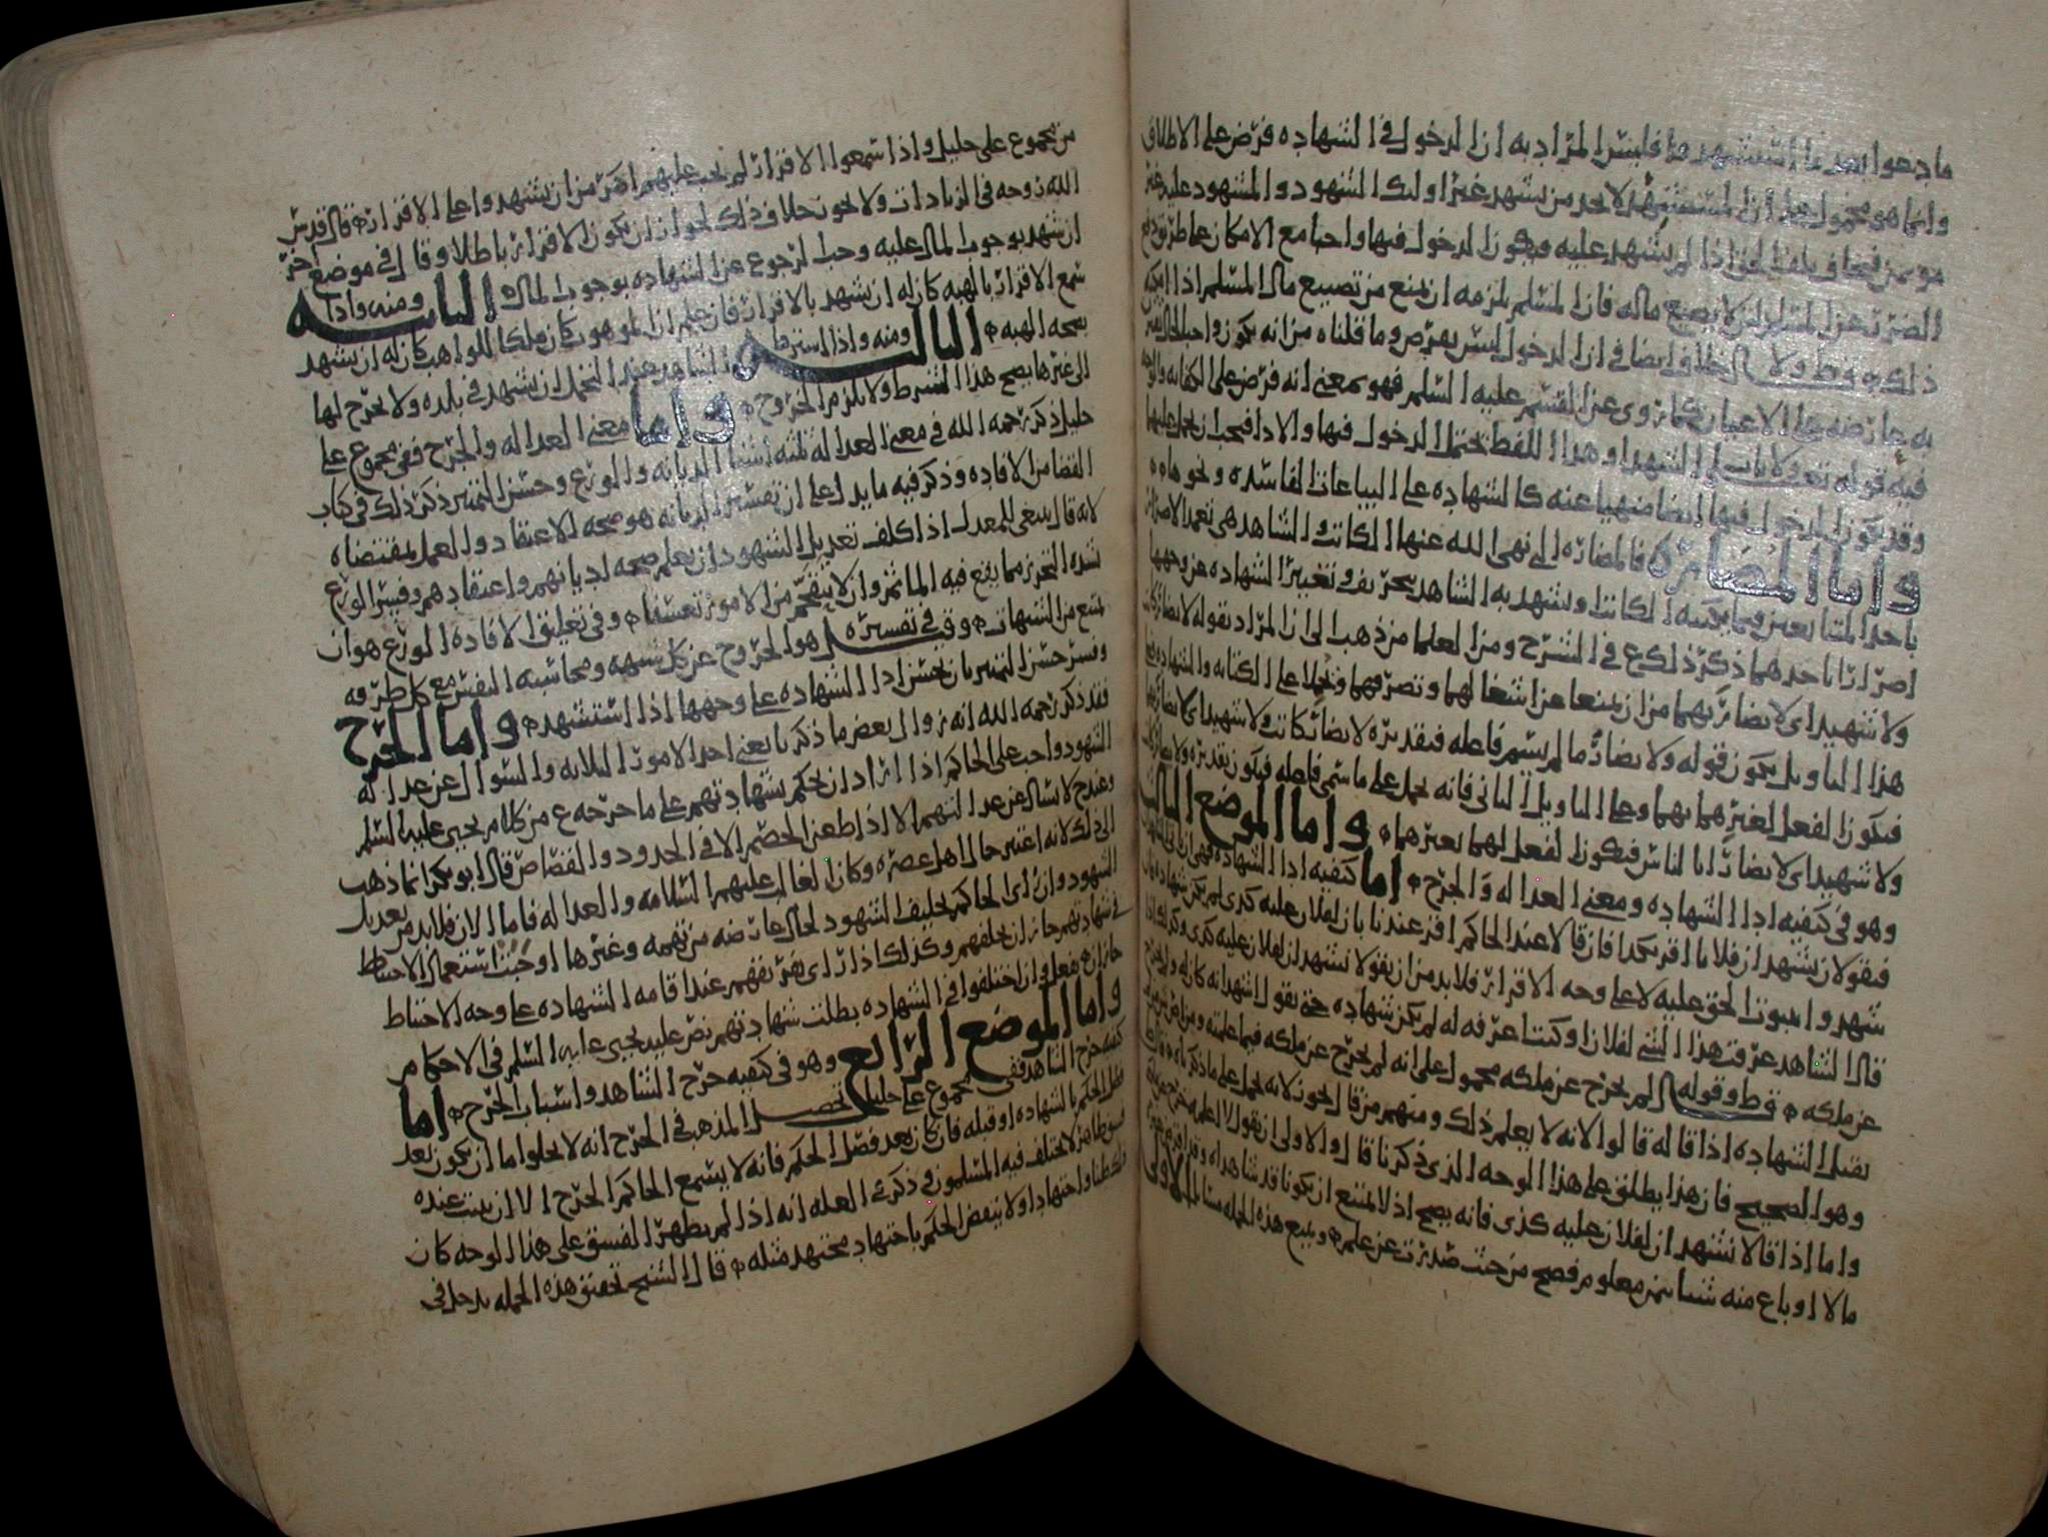 ما دعوا بعد ما استشهدوا فليس المراد به ان الدخول في الشهاده فرض على الاطلاق
وانما هو محمول على ان المستشهد لا يجد من يشهد غير اولئك الشهود والمشهود عليه غير
موتمن فيخاف تلف الحق اذا لم يشهد عليه فيكون الدخول فيها واجبا مع الامكان على طريق دفع
الضرر عن المسلم لئلا يضيع ماله فان المسلم يلزمه ان يمنع من تضييع مال المسلم اذا امكنه
ذلك ولا خلاف ايضا في ان الدخول ليس بفرض وما قلناه من انه يكون واجبا
به عارضه على الاعيان كما روى عن القسم عليه السلم فهو بمعنى انه فرض على الكفايه
فيه قوله تع ولا ياب الشهدا وهذا اللفظ يحتمل الدخول فيها والادا فيجب ان يحمل عليهما
وقد يكون الدخول فيها ايضا منهيا عنه كالشهاده على البياعات الفاسده ونحوها
واما المضاره فالمضاره التي نهى الله عنها الكاتب والشاهد هي تعمد الاضرار
باحد المتبايعين فيما يكتبه الكاتب ويشهد به الشاهد بتحريف وتغيير الشهاده عن وجهها
اضرارا باحدهما ذكر ذلك ع في الشرح ومن العلما من ذهب الى ان المراد بقوله لا يضار كاتب
ولا شهيد اي لا يضار بهما من ان يمنعا عن اشغالهما وتصرفهما ويحملا على الكتابه والشهاده
هذا التاويل يكون قوله ولا يضار ما لم يسم فاعله فتقديره لا يضارر كاتب ولا شهيد اي لا يضارهما
فيكون الفعل لغيرهما بهما وعلى التاويل الثاني فانه يحمل على ما سمي فاعله فيكون تقديره ولا يضارر كاتب
ولا شهيد اي لا يضارا الناس فيكون الفعل لهما بغيرهما واما الموضع الثالث
وهو في كيفيه ادا الشهاده ومعنى العداله والجرح اما كيفيه ادا الشهاده فهي ان
فيقولان نشهد ان فلانا اقر بكذا فان قالا عند الحاكم اقر عندنا بان لفلان عليه كذى لم تكن شهاده
شهدوا بثبوت الحق عليه لا على وجه الاقرار فلا بد من ان يقولا نشهد ان لفلان عليه كذى وكذلك
قال الشاهد عرفت هذا الشي لفلان او كنت اعرفه له لم يكن شهاده حتى يقول اشهد انه كان له ولم يخرج
عن ملكه وقوله لم يخرج عن ملكه محمول على انه لم يخرج عن ملكه فيما علمته
تقبل الشهاده اذا قاله قالوا لانه لا يعلم ذلك ومنهم من قال يجوز لانه يحمل على ما ذكرناه
وهو الصحيح فان هذا يطلق على هذا الوجه الذي ذكرنا قال والاولى ان يقول لا اعلمه خرج
واما اذا قالا نشهد ان لفلان عليه كذى فانه يصح اذ لا يمتنع ان يكونا قد شاهداه وقد اقرضه
مالا او باع منه شيا بثمن معلوم فصح من حيث صدرت عن علم ويتبع هذه الجمله مسائل الاولى
من مجموع على خليل واذا سمعوا الاقرار لم يجب عليهم اكثر من ان يشهدوا على الاقرار قال قدس
الله روحه في الزيادات ولا يجوز خلاف ذلك لجواز ان يكون الاقرار باطلا وقال في موضع اخر
ان شهد بوجوب المال عليه وجب الرجوع عن الشهاده بوجوب المال الثانيه ومنه واذا
سمع الاقرار بالهبه كان له ان يشهد بالاقرار فان علم ان الموهوب كان ملكا للواهب كان له ان يشهد
بصحه الهبه الثالثه ومنه واذا اشترط الشاهد عند التحمل ان يشهد في بلده ولا يخرج لها
الى غيرها يصح هذا الشرط ولا يلزم الخروج واما معنى العداله والجرح ففي مجموع على
خليل ذكر رحمه الله في معنى العداله ثلثه اشيا الديانه والورع وحسن التمييز ذكر ذلك في كتاب
القضا من الافاده وذكر فيه ما يدل على ان تفسير الديانه هو صحه الاعتقاد والعمل بمقتضاه
لانه قال ينبغي للمعدل اذا كلف تعديل الشهود ان يعلم صحه ادياناتهم واعتقادهم وفسر الورع
شده التحرز مما يقع فيه الماثم وان لا يتقحم من الامور تعسفا وفي تعليق الافاده الورع هو ان
يمتنع من الشبهات وقيل في تفسيره هو الخروج عن كل شبهه ومحاسبه النفس مع كل طرفه
وفسر حسن التمييز بان يحسن ادا الشهاده على وجهها اذا استشهد واما الجرح
فقد ذكر رحمه الله انه زوال بعض ما ذكرنا يعني احد الامور الثلاثه والسوال عن عداله
الشهود واجب على الحاكم اذا اراد ان يحكم بشهادتهم على ما خرجه ع من كلام يحيى عليه السلم
وعند ح لا يسال عن عدالتهم الا اذا طعن الخصم الا في الحدود والقصاص قال ابو بكر انما ذهب
الى ذلك لانه اعتبر حال اهل عصره وكان الغالب عليهم السلامه والعداله فاما الان فلا بد من تعديل
الشهود وان راى الحاكم تحليف الشهود لحال عارضه من تهمه وغيرها اوجبت استعمال الاحتياط
في شهادتهم جاز ان يحلفهم وكذلك اذا راى تفريقهم عند اقامه الشهاده على وجه الاحتياط
جاز ان يفعل وان اختلفوا في الشهاده بطلت شهادتهم نص عليه يحيى عليه السلم في الاحكام
واما الموضع الرابع وهو في كيفيه جرح الشاهد واسباب الجرح اما
كيفيه جرح الشاهد ففي مجموع على خليل تحصيل المذهب في الجرح انه لا يخلوا اما ان يكون بعد
فصل الحكم بالشهاده او قبله فان كان بعد فصل الحكم فانه لا يسمع الحاكم الجرح الا ان يثبت عنده
فسق ظاهر لا يختلف فيه المسلمون وذكر في العله انه اذا لم يظهر الفسق على هذا الوجه كان
ذلك ظنا واجتهادا ولا ينقض الحكم باجتهاد مجتهد مثله قال الشيخ تحقيق هذه الجمله يدخل في